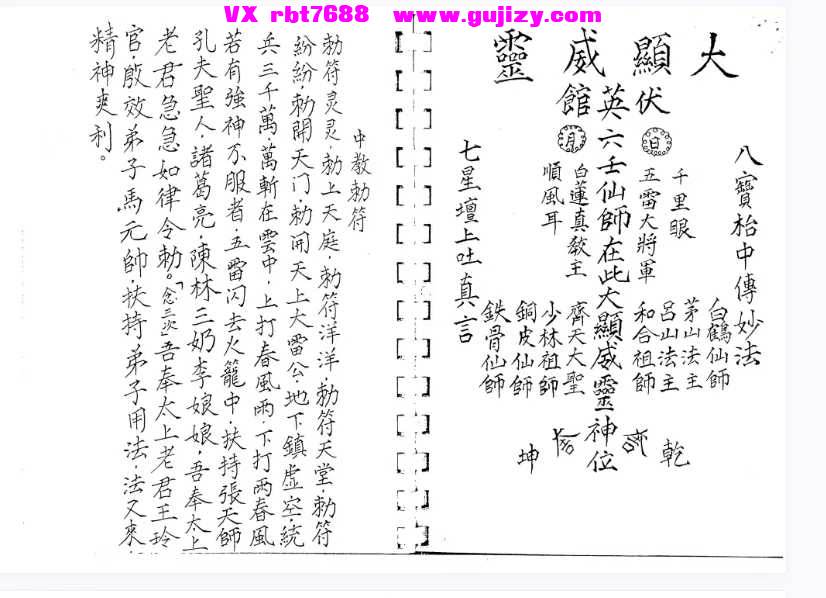 VX rbt7688 www.gujizy.com
大顯威靈
八寶枱中傳妙法
白鶴仙師
茅山法主
呂山法主
和合祖師
千里眼
五雷大將軍
日
伏英館
六壬仙師在此大顯威靈神位
月
白蓮真教主
順風耳
齊天大聖
少林祖師
銅皮仙師
鉄骨仙師
七星壇上吐真言
乾
坤
中教勅符
勅符灵灵，勅上天庭，勅符洋洋，勅符天堂，勅符
紛紛，勅開天门，勅開天上大雷公，地下鎮虛空，統
兵三千萬，萬斬在雲中，上打春風雨，下打雨春風
若有強神不服者，五雷闪去火籠中，扶持張天師
孔夫聖人，諸葛亮，陳林三奶李娘娘，吾奉太上
老君急急如律令勅。「念三次」吾奉太上老君王玲
官，啟效弟子馬元帥，扶持弟子用法，法又來
精神爽利。